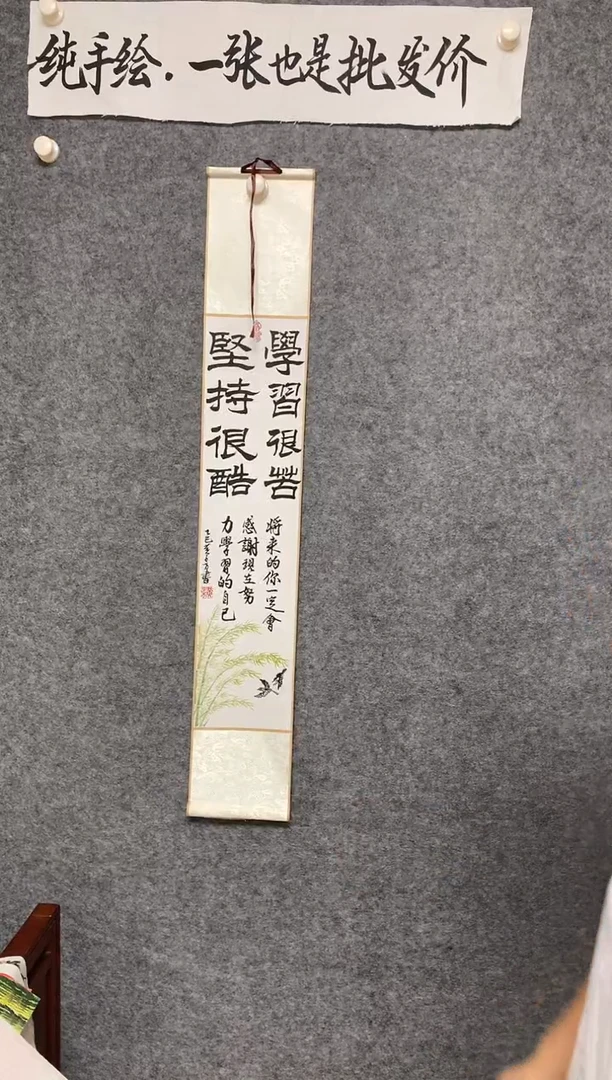 纯手绘.一张也是批发价
學習很苦
堅持很酷
将来的你一定會
感謝現在努
力學習的自己